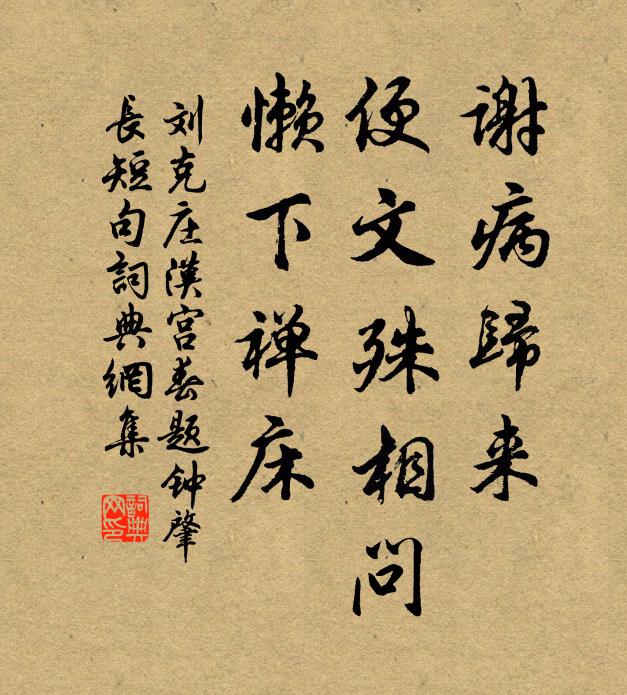 谢病歸来
便文殊相问
懒下禅床
刘克庄漢宮春题钟肇
長短句詞典網集
詞典网印